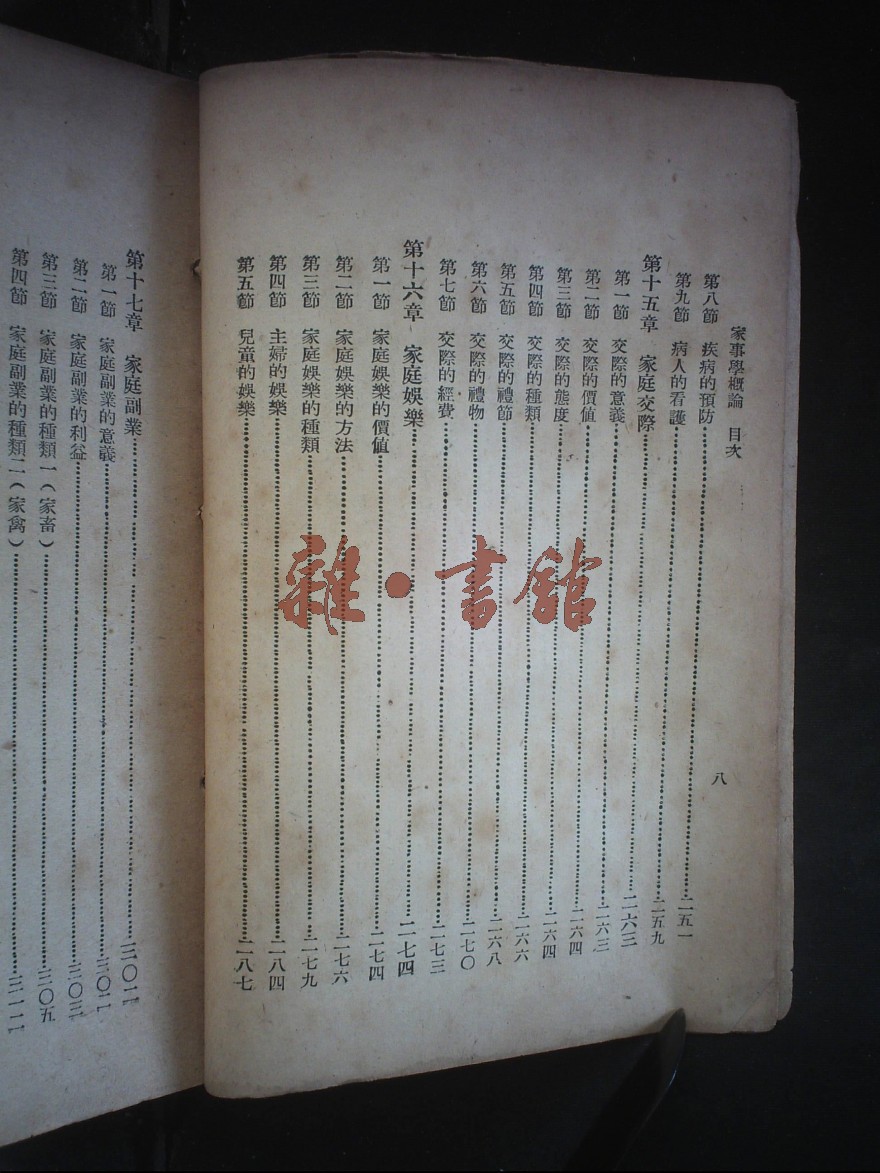 家事學概論 目次 八
第八節 疾病的預防……二五一
第九節 病人的看護……二五九
第十五章 家庭交際……二六三
第一節 交際的意義……二六三
第二節 交際的價值……二六四
第三節 交際的態度……二六四
第四節 交際的種類……二六六
第五節 交際的禮節……二六八
第六節 交際的禮物……二七〇
第七節 交際的經費……二七三
第十六章 家庭娛樂……二七四
第一節 家庭娛樂的價値……二七四
第二節 家庭娛樂的方法……二七六
第三節 家庭娛樂的種類……二七九
第四節 主婦的娛樂……二八四
第五節 兒童的娛樂……二八七
第十七章 家庭副業……三〇二
第一節 家庭副業的意義……三〇二
第二節 家庭副業的利益……三〇三
第三節 家庭副業的種類一(家畜)……三〇五
第四節 家庭副業的種類二(家禽)……
雜·書館